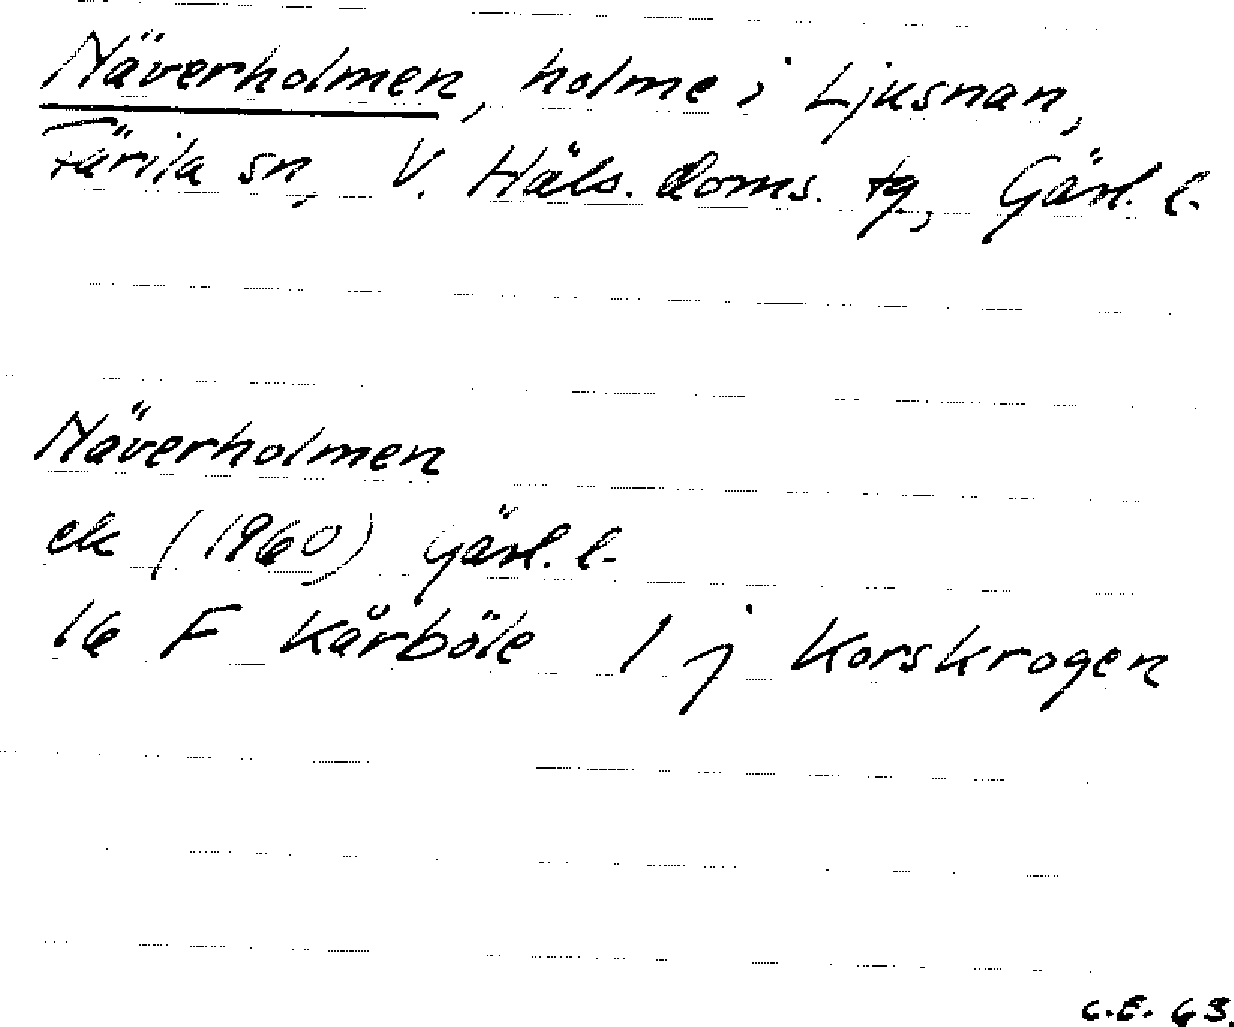 Näverholmen, holme i Ljusnan,
Färila sn, V. Häls. doms. tg, Gävl. l.
Näverholmen
ek (1960) Gävl. l.
16 F Kårböle 1 j Korskrogen
C.E. 63.